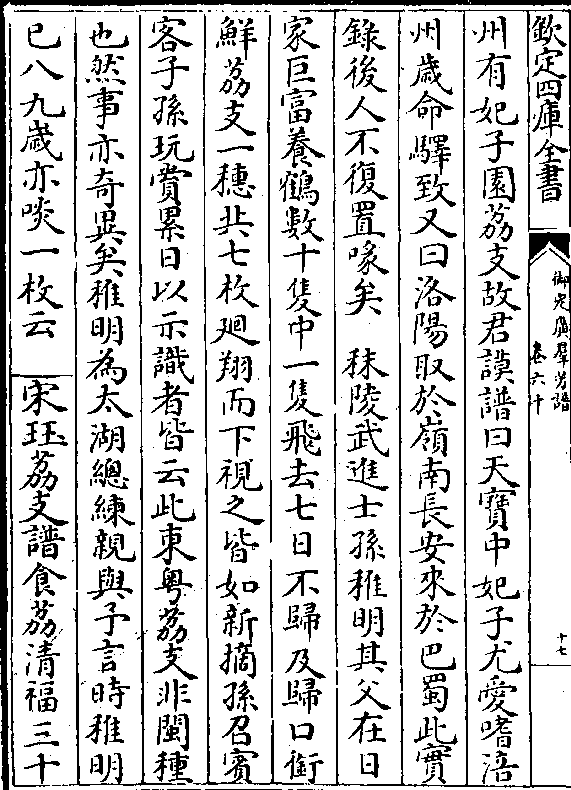 欽定四庫全書
御定廣羣芳譜
卷六十
十七
州有妃子園荔支故君謨譜曰天寳中妃子尤愛嗜涪
州歲命驛致又曰洛陽取於嶺南長安來於巴蜀此實
錄後人不復置喙矣 秣陵武進士孫稚明其父在日
家巨富養鶴數十隻中一隻飛去七日不歸及歸口銜
鮮荔支一穗共七枚廻翔而下視之皆如新摘孫召賓
客子孫玩賞累日以示識者皆云此東粤荔支非閩種
也然事亦奇異矣稚明為太湖總練親與予言時稚明
已八九歲亦啖一枚云 宋珏荔支譜食荔清福三十